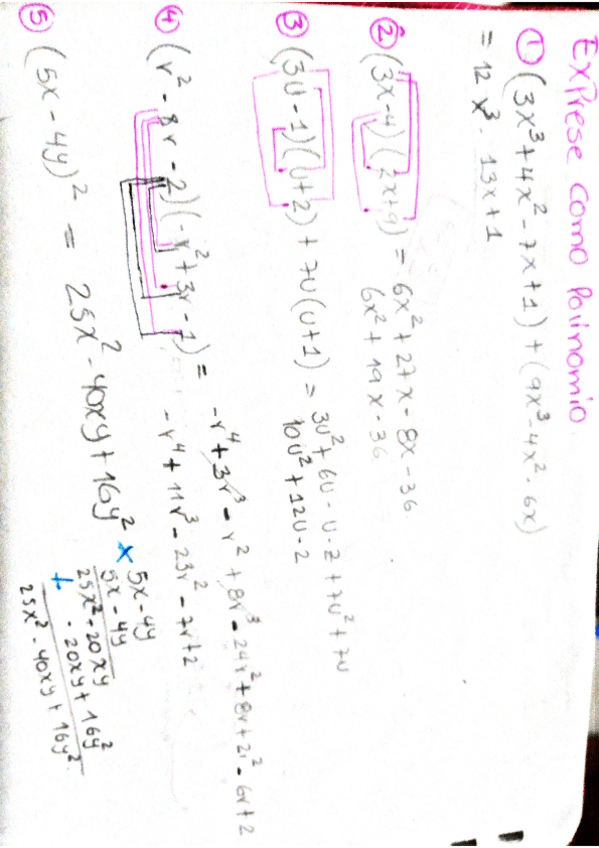 Exprese como Polinomio.
① (3x³+4x²-7x+1)+(9x³-4x²-6x)
= 12x³-13x+1
② (3x-4)(2x+9) = 6x²+27x-8x-36.
6x²+19x-36
③ (3u-1)(u+2)+7u(u+1) = 3u²+6u-u-2+7u²+7u
10u²+12u-2
④ (r²-8r-2)(-r²+3r-1) = -r⁴+3r³-r²+8r³-24r²+8r+2r²-6r+2
-r⁴+11r³-23r²-2r+2
⑤ (5x-4y)² = 25x²-40xy+16y²
x 5x-4y
5x-4y
25x²-20xy
+ -20xy+16y²
25x²-40xy+16y²